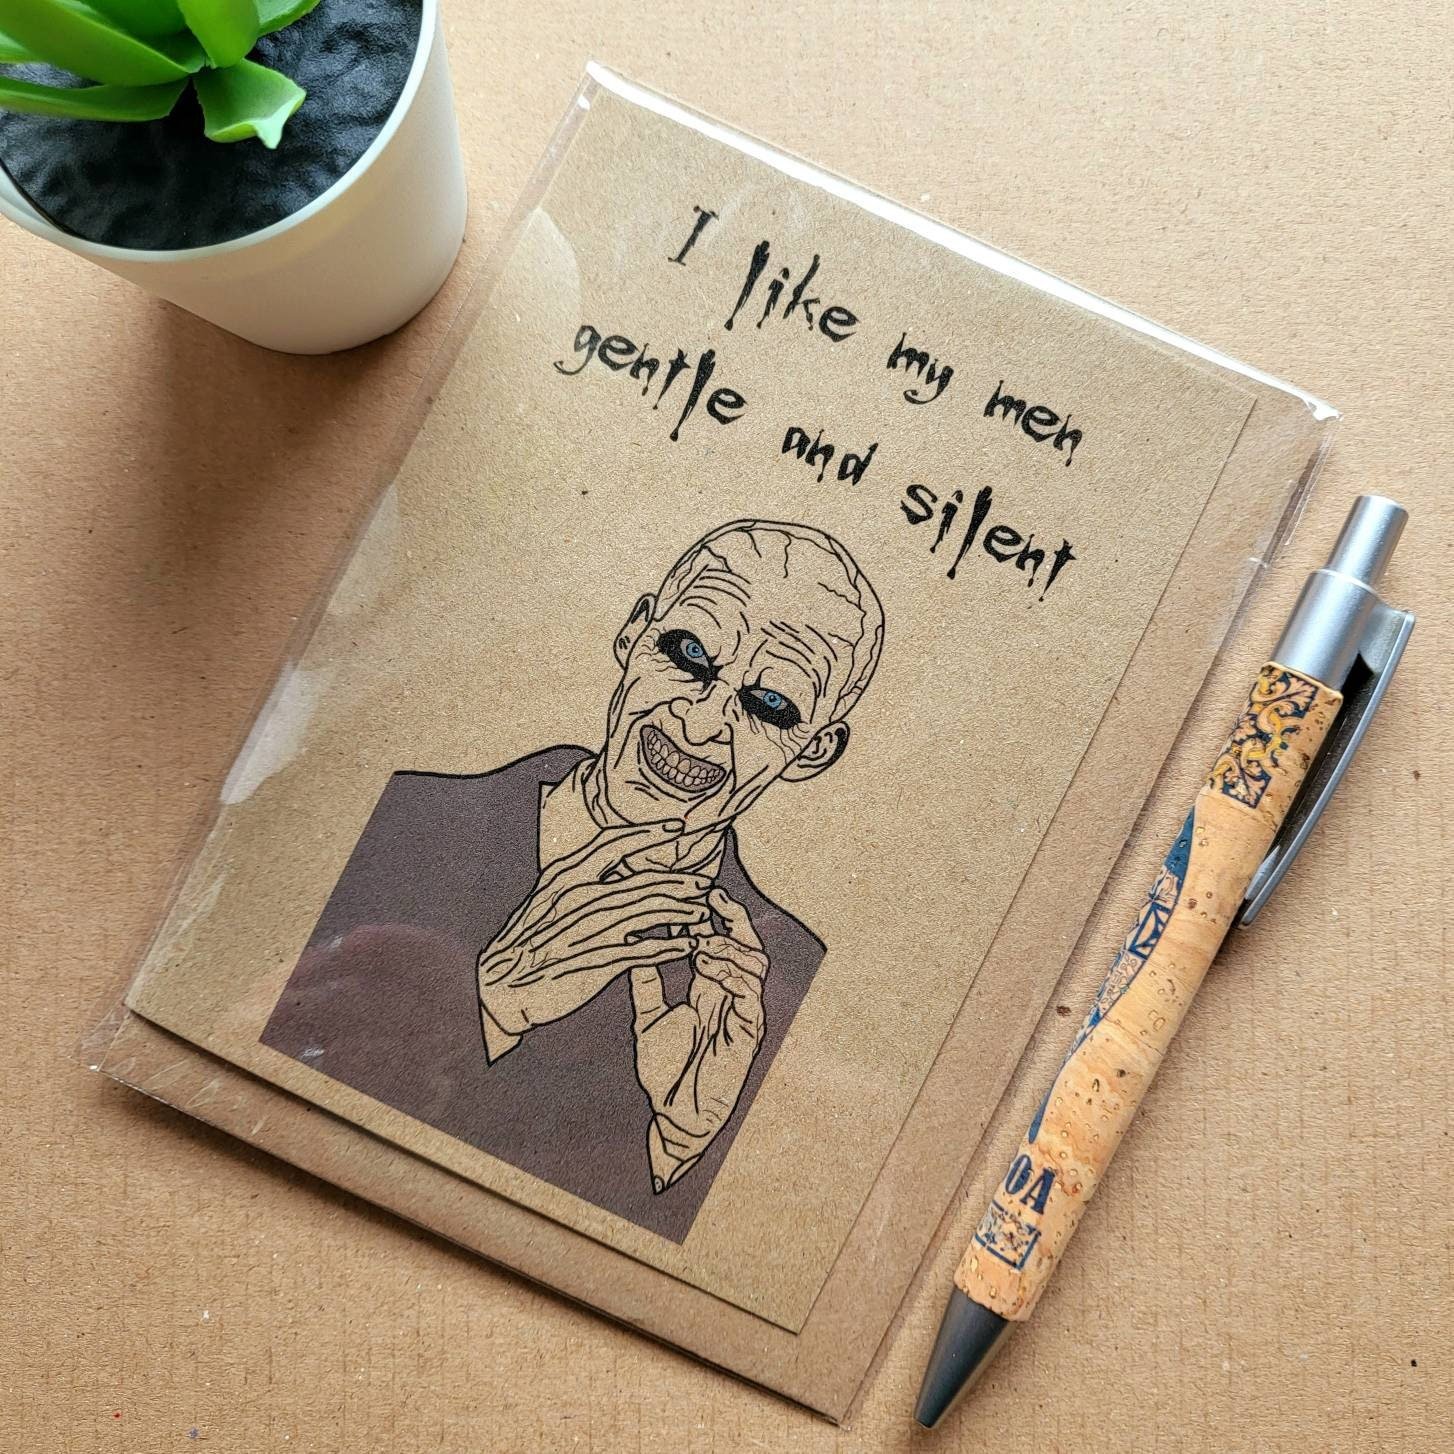 I like my men
gentle and silent
OA